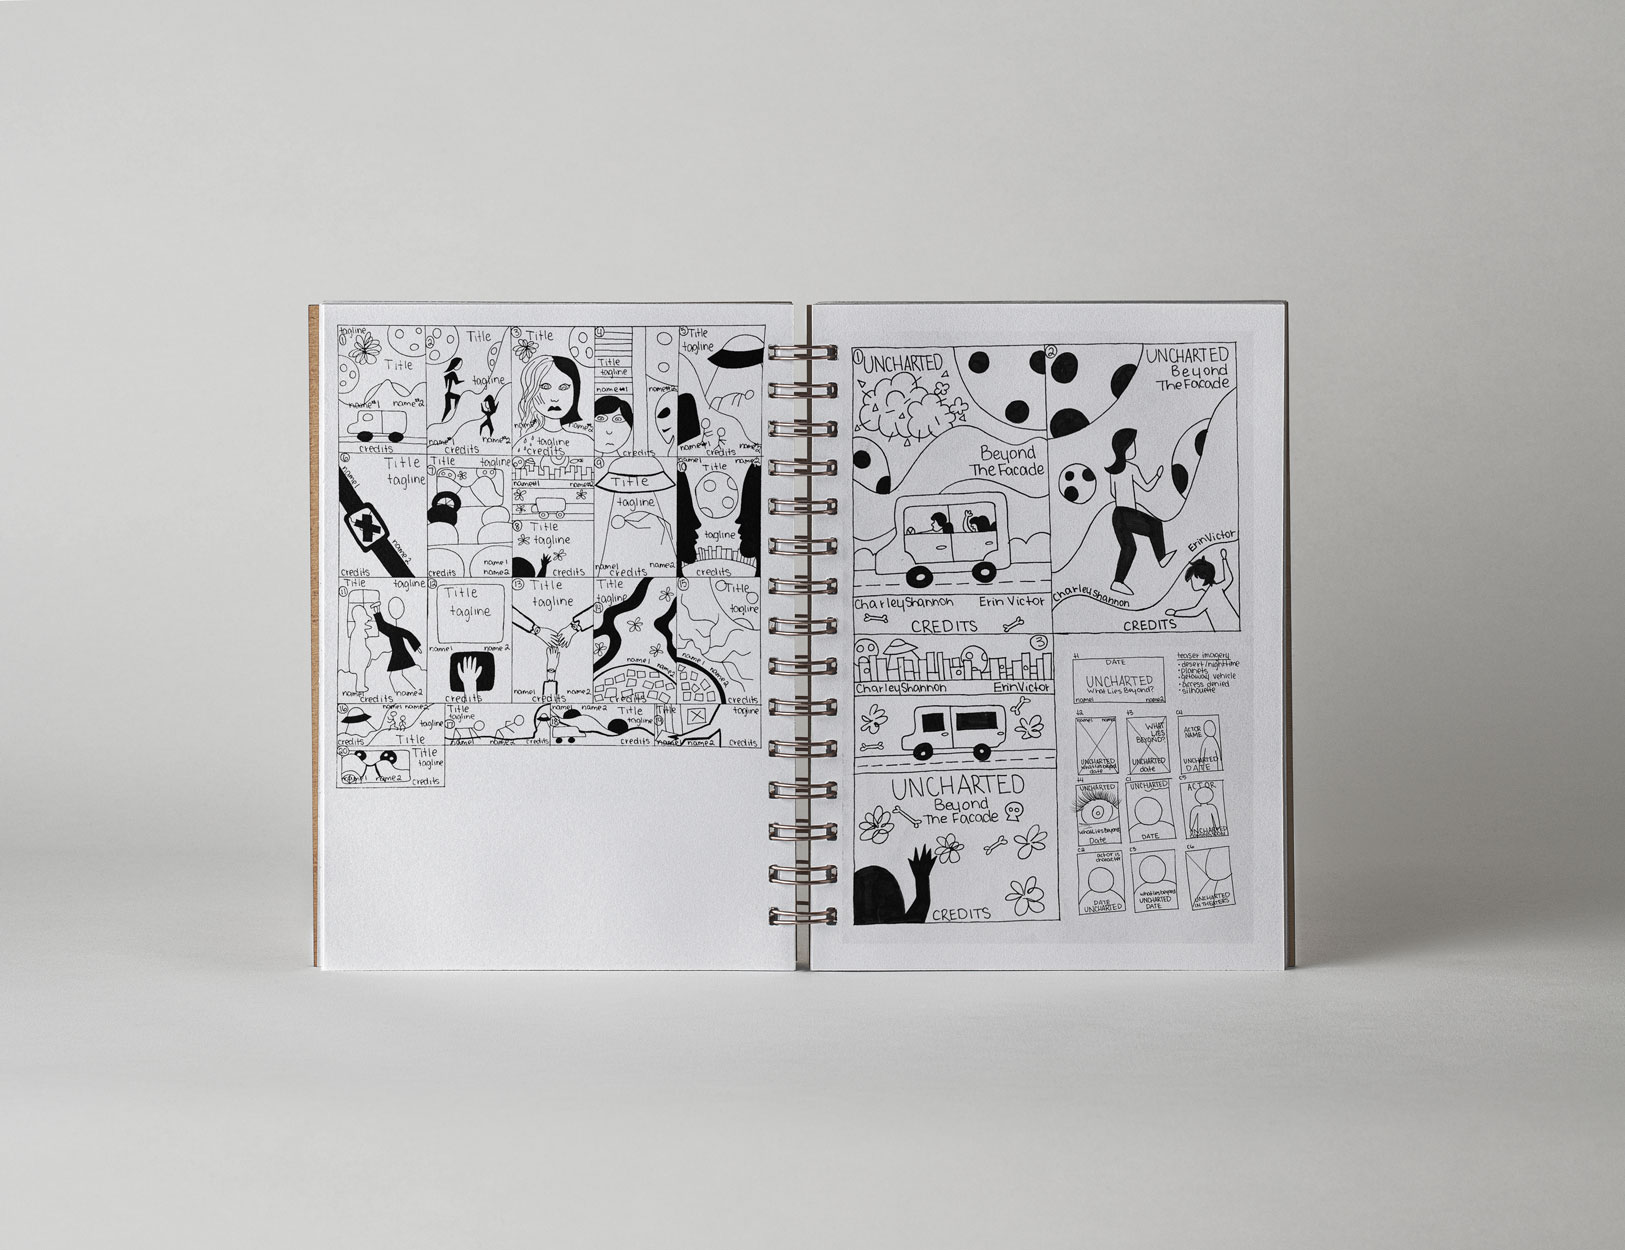 tagline
1
Title
name#1 name#2
credits
2
Title
tagline
name#1
name#2
credits
3
Title
tagline
credits
4
Title
tagline
name#1
name#2
credits
5
Title
tagline
name#1
name#2
credits
6
Title
tagline
name1
name2
credits
7
Title
tagline
name1
name2
credits
name#1
name#2
8
Title
tagline
credits
9
Title
tagline
name1
name2
credits
name1
name2
10
Title
tagline
credits
11
Title
tagline
name1
name2
credits
12
Title
tagline
name1
name2
credits
13
Title
tagline
name1
name2
credits
14
Title
tagline
name1
name2
credits
15
Title
tagline
name1
name2
credits
16
name1 name2
tagline
credits
Title
17
Title
tagline
name1
name2
credits
18
Title
tagline
credits
19
Title
tagline
name1
name2
credits
20
Title
tagline
name1
name2
credits
1
UNCHARTED
Beyond
The Facade
Charley Shannon
Erin Victor
CREDITS
2
UNCHARTED
Beyond
The Facade
Erin Victor
Charley Shannon
CREDITS
3
Charley Shannon
Erin Victor
UNCHARTED
Beyond
The Facade
CREDITS
t1
DATE
UNCHARTED
What Lies Beyond?
name1
name2
teaser imagery
• desert/nighttime
• planets
• getaway vehicle
• access denied
• silhouette
t2
UNCHARTED
what lies beyond
date
t3
WHAT
LIES
BEYOND?
UNCHARTED
date
ACTOR
NAME
UNCHARTED
DATE
t4
UNCHARTED
what lies beyond
Date
C1
UNCHARTED
DATE
ACTOR
UNCHARTED
C2
actor is
character
DATE
UNCHARTED
C3
what lies beyond
UNCHARTED
DATE
C6
UNCHARTED
IN THEATERS